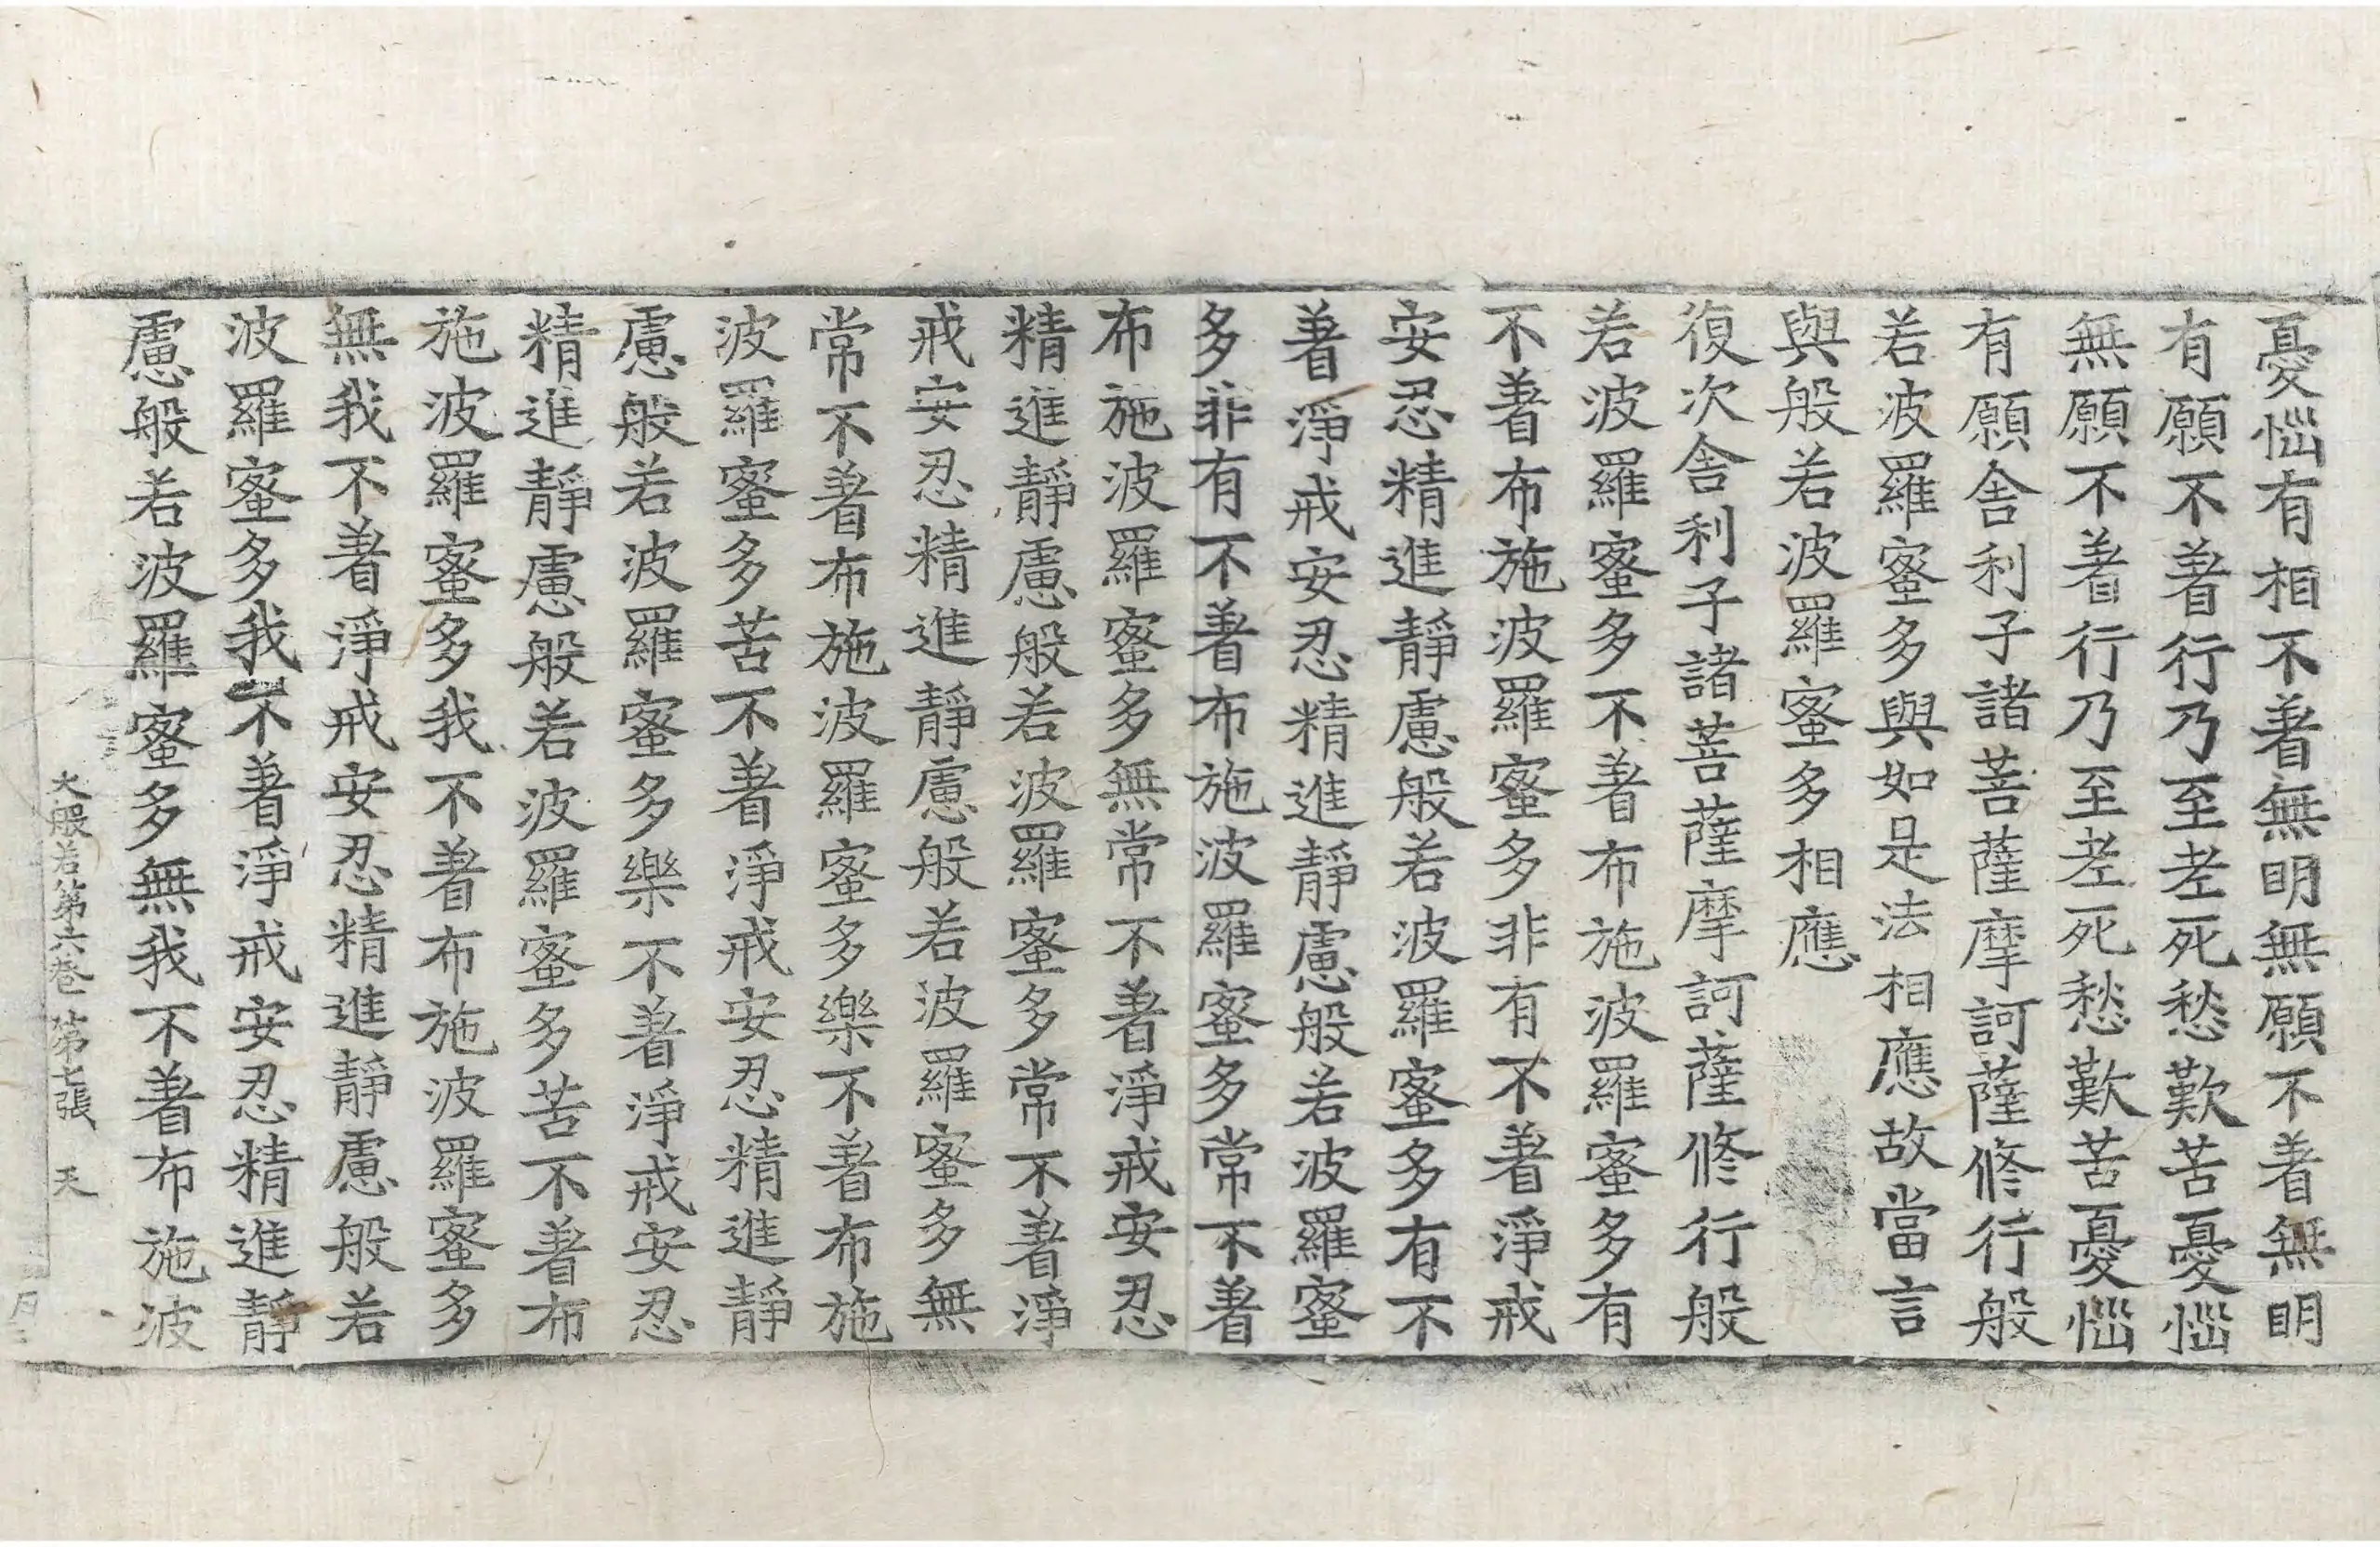 憂惱有相不著無明無願不著無明
有願不著行乃至老死愁歎苦憂惱
無願不著行乃至老死愁歎苦憂惱
有願舍利子諸菩薩摩訶薩修行般
若波羅蜜多與如是法相應故當言
與般若波羅蜜多相應
復次舍利子諸菩薩摩訶薩修行般
若波羅蜜多不著布施波羅蜜多有
不著布施波羅蜜多非有不著淨戒
安忍精進靜慮般若波羅蜜多有不
著淨戒安忍精進靜慮般若波羅蜜
多非有不著布施波羅蜜多常不著
布施波羅蜜多無常不著淨戒安忍
精進靜慮般若波羅蜜多常不著淨
戒安忍精進靜慮般若波羅蜜多無
常不著布施波羅蜜多樂不著布施
波羅蜜多苦不著淨戒安忍精進靜
慮般若波羅蜜多樂不著淨戒安忍
精進靜慮般若波羅蜜多苦不著布
施波羅蜜多我不著布施波羅蜜多
無我不著淨戒安忍精進靜慮般若
波羅蜜多我不著淨戒安忍精進靜
慮般若波羅蜜多無我不著布施波
大般若第六卷 第七張 天